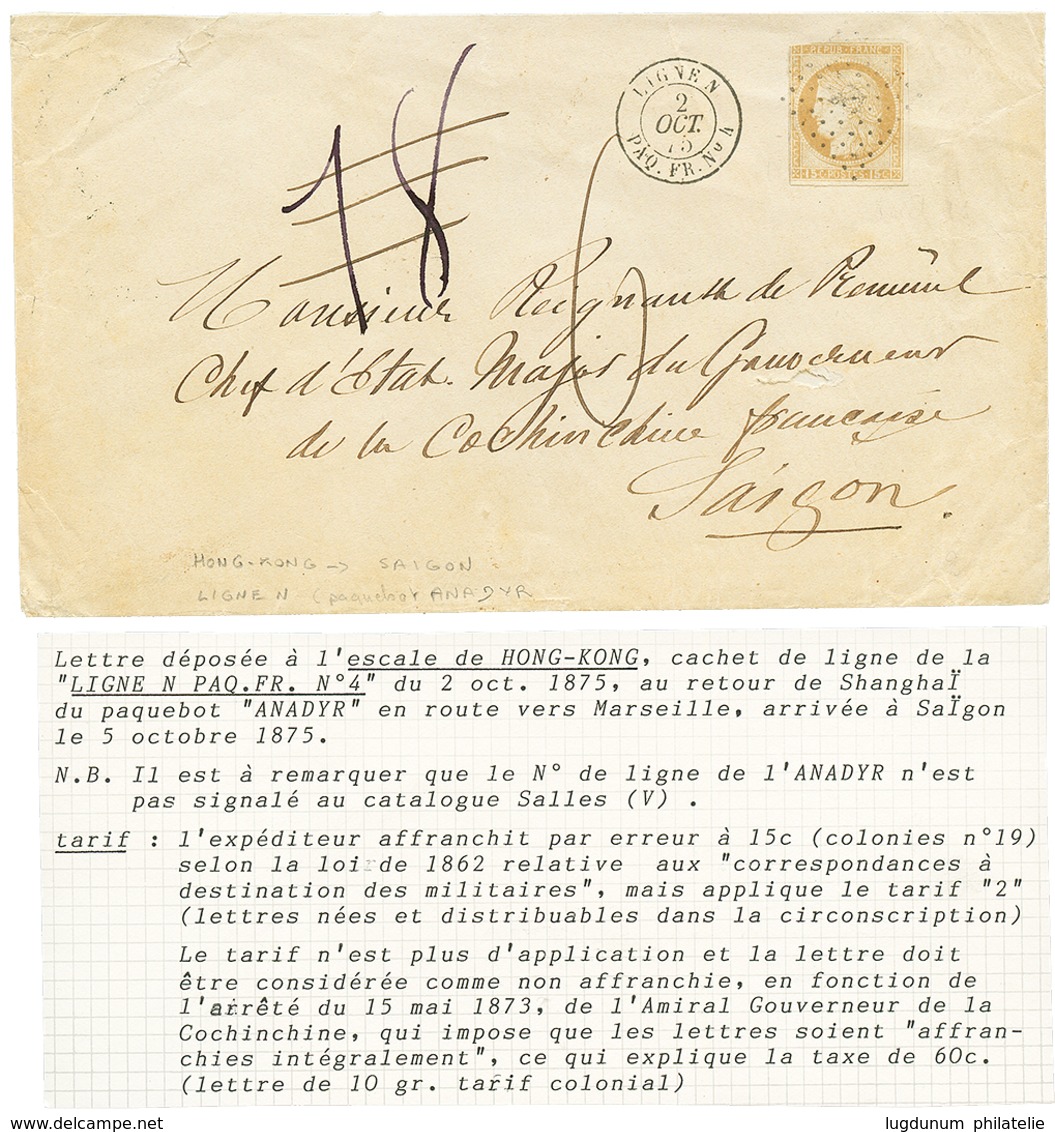 18
LIGNE N
2
OCT.
75
PAQ. FR. No 4
REPUB. FRANC.
15 C. POSTES 15 C.
Monsieur
de
Chef d'Etat. Major du Gouverneur
de la Cochinchine française
Saïgon.
HONG-KONG -> SAIGON
LIGNE N (paquebot ANADYR
Lettre déposée à l'escale de HONG-KONG, cachet de ligne de la
"LIGNE N PAQ.FR. N°4" du 2 oct. 1875, au retour de ShanghaÏ
du paquebot "ANADYR" en route vers Marseille, arrivée à SaÏgon
le 5 octobre 1875.
N.B. Il est à remarquer que le N° de ligne de l'ANADYR n'est
pas signalé au catalogue Salles (V) .
tarif : l'expéditeur affranchit par erreur à 15c (colonies n°19)
selon la loi de 1862 relative aux "correspondances à
destination des militaires", mais applique le tarif "2"
(lettres nées et distribuables dans la circonscription)
Le tarif n'est plus d'application et la lettre doit
être considérée comme non affranchie, en fonction de
l'arrêté du 15 mai 1873, de l'Amiral Gouverneur de la
Cochinchine, qui impose que les lettres soient "affran-
chies intégralement", ce qui explique la taxe de 60c.
(lettre de 10 gr. tarif colonial)
delcampe.net
lugdunum philatelie